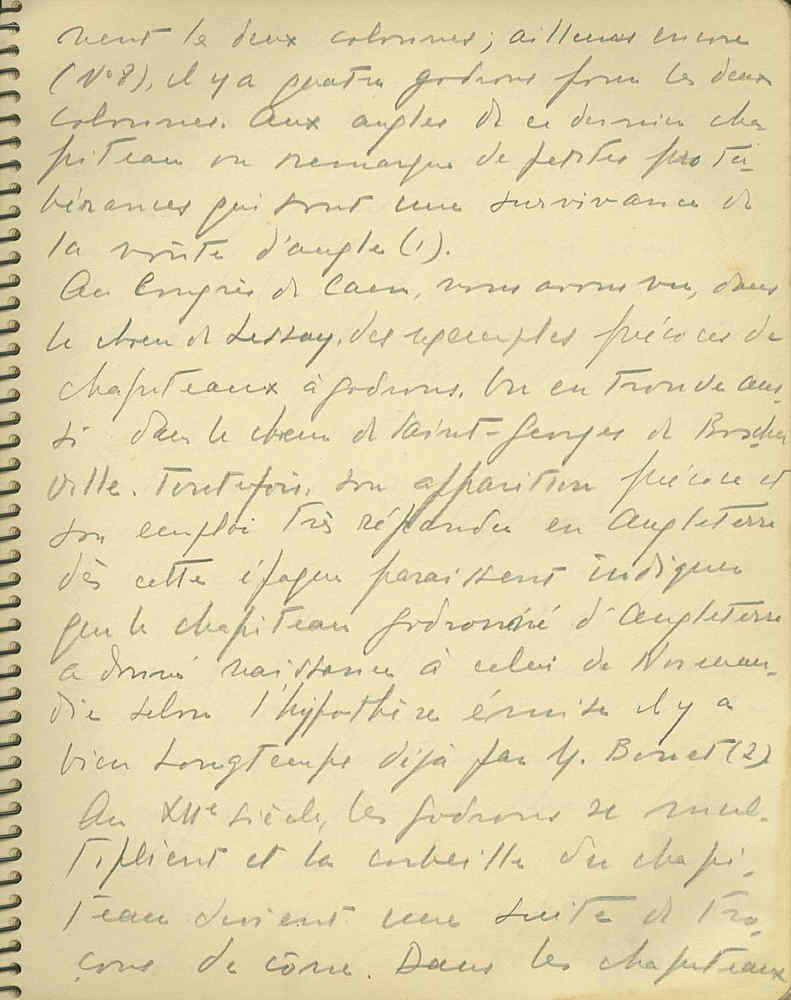 vent le deux colonnes; ailleurs encore
(N° 8), il y a quatre godrons pour les deux
colonnes. Aux angles de ce dernier cha
piteau on remarque de petites protu-
bérances qui sont une survivance de
la voûte d'angle (1).
Au Congrès de Caen, nous avons vu, dans
le chœur de Lessay, des exemples précoces de
chapiteaux à godrons. On en trouve aus-
si dans le chœur de Saint-Georges de Boscher
ville. Toutefois, son apparition précoce et
son emploi très répandu en Angleterre
dès cette époque paraissent indiquer
que le chapiteau godronné d'Angleterre
a donné naissance à celui de Norman-
die selon l'hypothèse émise il y a
bien longtemps déjà par M. Bonet (2)
Au XIIe siècle, les godrons se mul-
tiplient et la corbeille du chapi-
teau devient une suite de tron-
çons de cône. Dans les chapiteaux